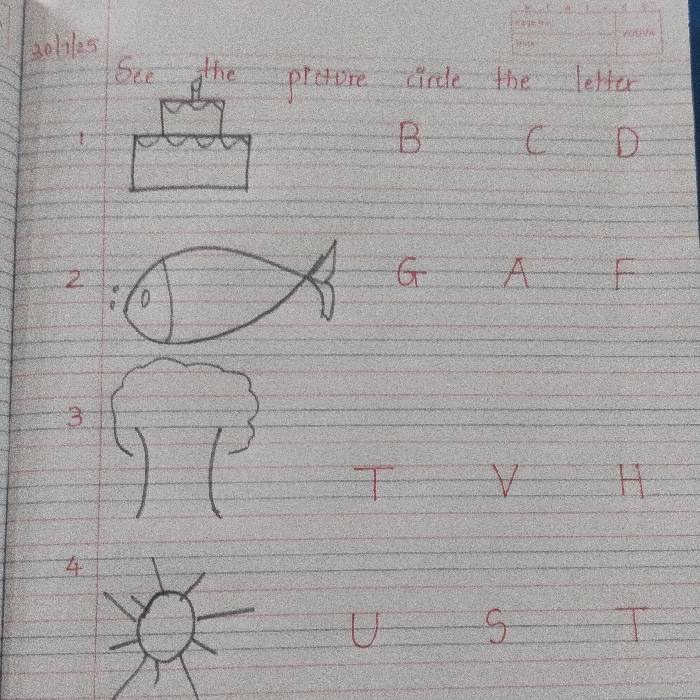 30/1/25
See the picture circle the letter
1 B C D
2 G A F
3 T V H
4 U S T